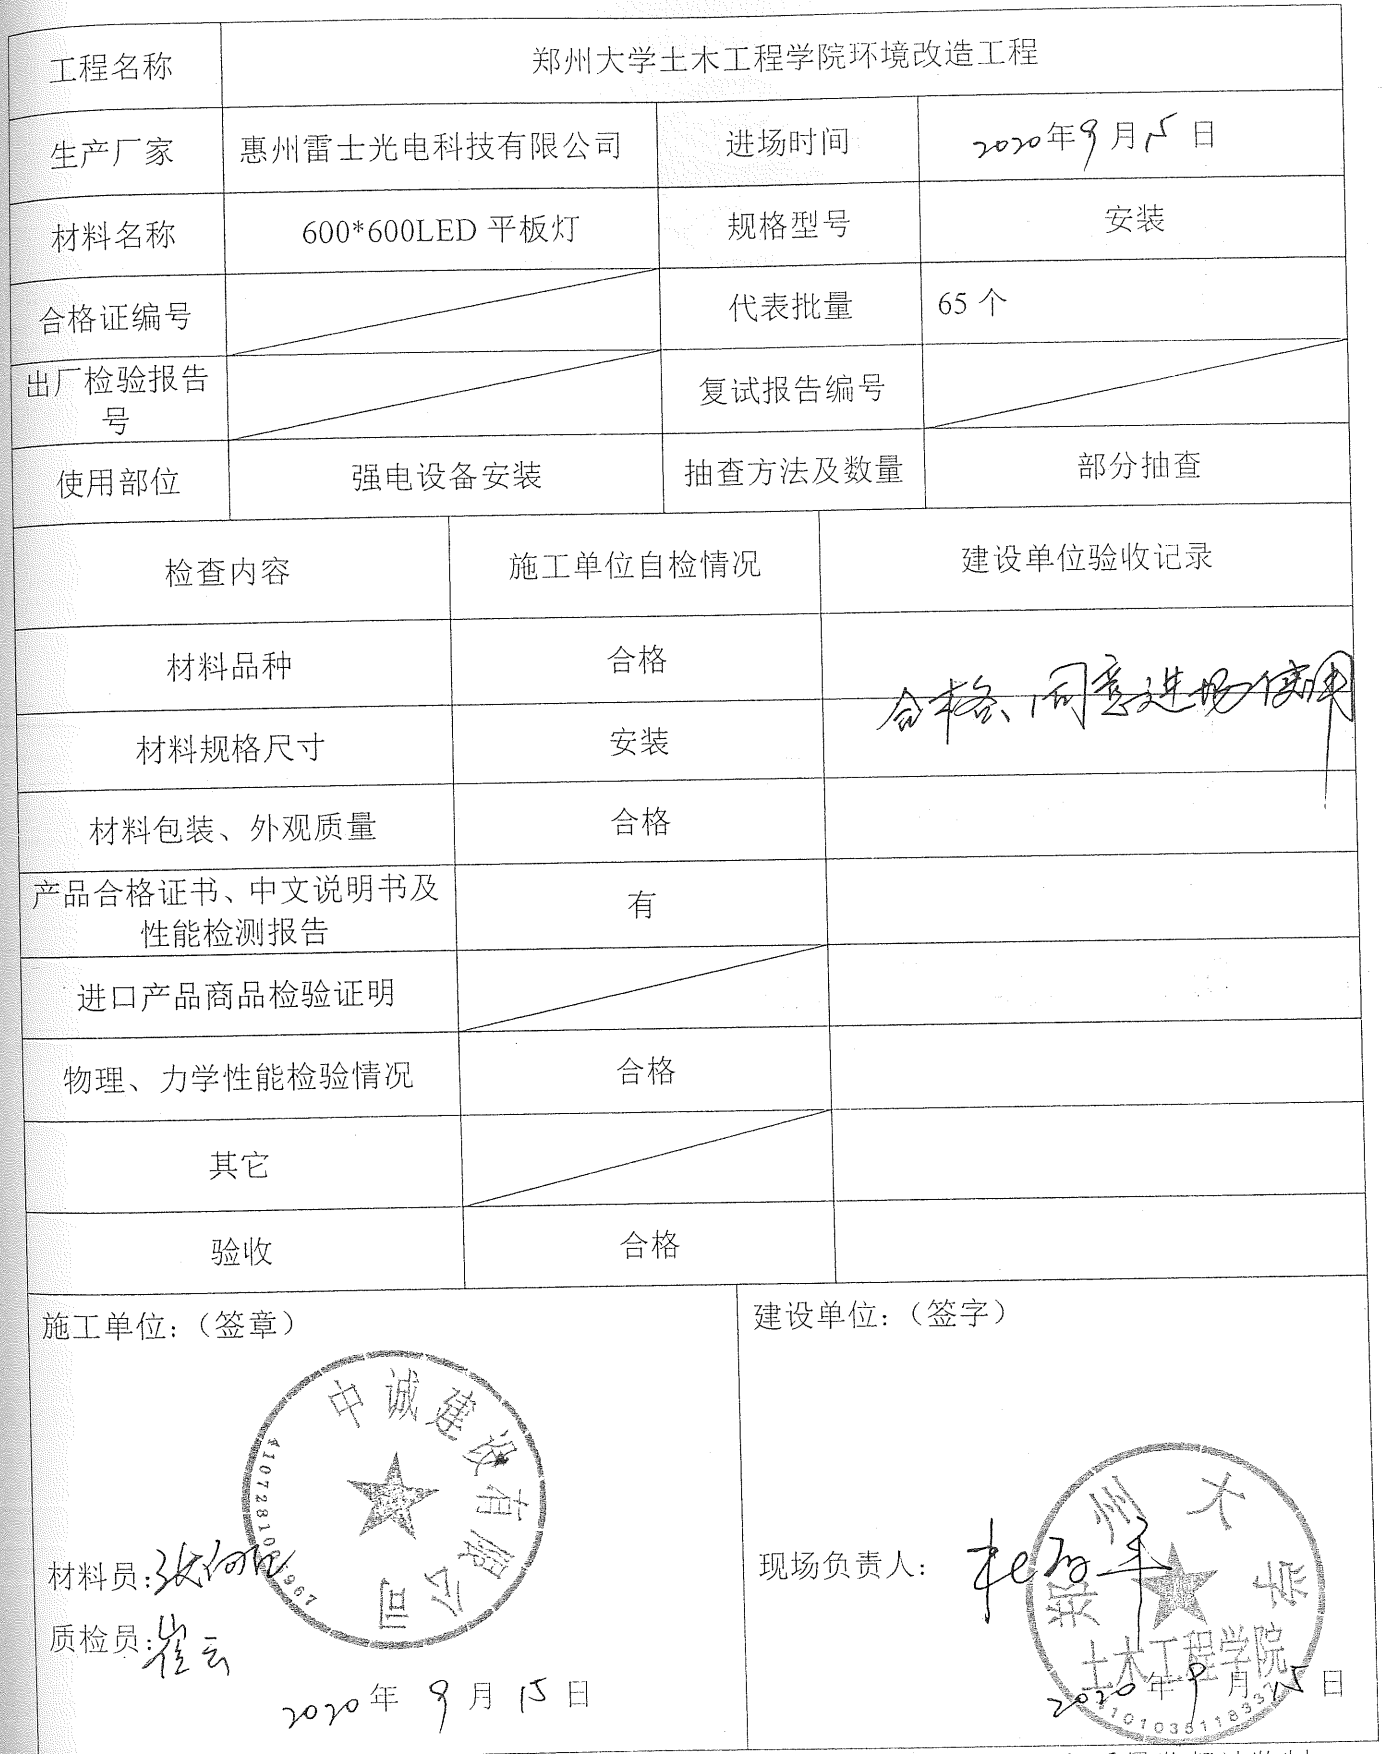 工程名称 郑州大学土木工程学院环境改造工程
生产厂家 惠州雷士光电科技有限公司 进场时间 2020年9月15日
材料名称 600*600LED 平板灯 规格型号 安装
合格证编号 代表批量 65 个
出厂检验报告
号 复试报告编号
使用部位 强电设备安装 抽查方法及数量 部分抽查
检查内容 施工单位自检情况 建设单位验收记录
材料品种 合格
合格、同意进场使用
材料规格尺寸 安装
材料包装、外观质量 合格
产品合格证书、中文说明书及
性能检测报告 有
进口产品商品检验证明
物理、力学性能检验情况 合格
其它
验收 合格
施工单位：（签章） 建设单位：（签字）
中诚建设有限公司
郑州大学
材料员： 现场负责人：
质检员：崔云
土木工程学院
2020年9月15日 2020年9月15日